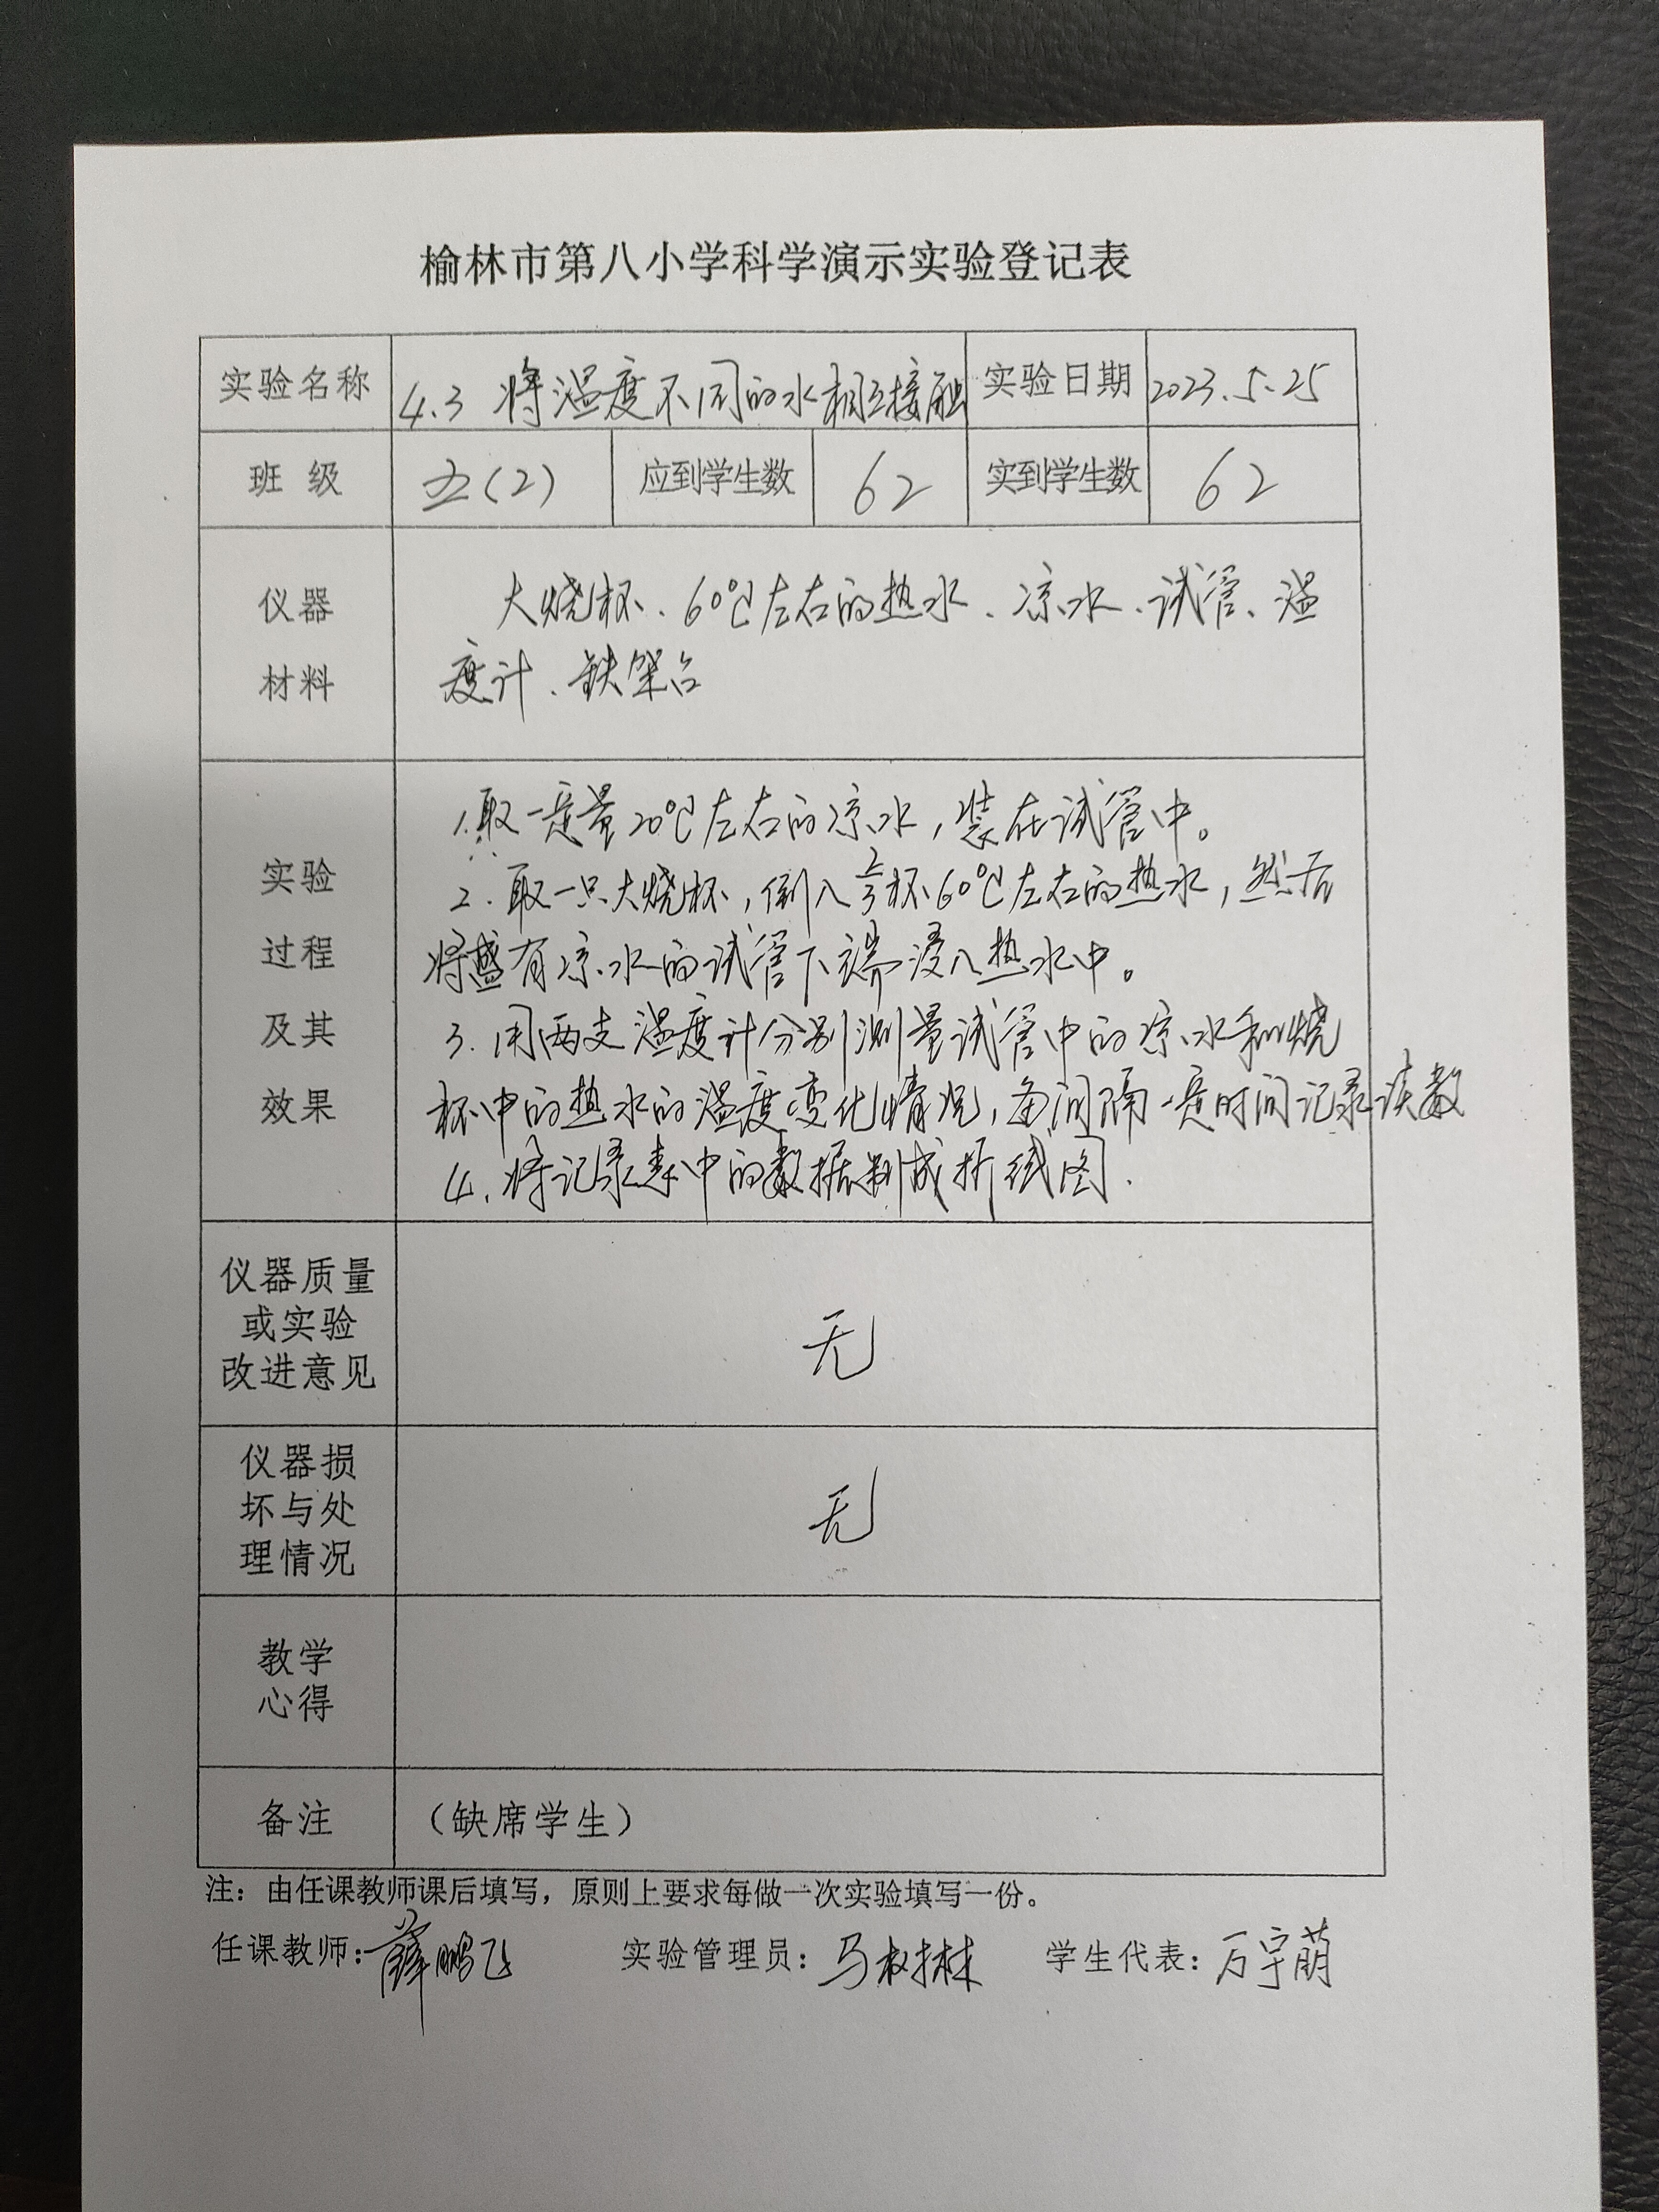 榆林市第八小学科学演示实验登记表
实验名称 4.3 将温度不同的水相互接触 实验日期 2023.5.25
班 级 五(2) 应到学生数 62 实到学生数 62
仪器
材料
大烧杯、60℃左右的热水、凉水、试管、温
度计、铁架台
实验
过程
及其
效果
1.取一定量20℃左右的凉水,装在试管中。
2.取一只大烧杯,倒入2/3杯60℃左右的热水,然后
将盛有凉水的试管下端浸入热水中。
3.用两支温度计分别测量试管中的凉水和烧
杯中的热水的温度变化情况,每间隔一定时间记录读数
4.将记录表中的数据制成折线图.
仪器质量
或实验
改进意见
无
仪器损
坏与处
理情况
无
教学
心得
备注 (缺席学生)
注:由任课教师课后填写,原则上要求每做一次实验填写一份。
任课教师:薛鹏飞 实验管理员:马树林 学生代表:万宇萌